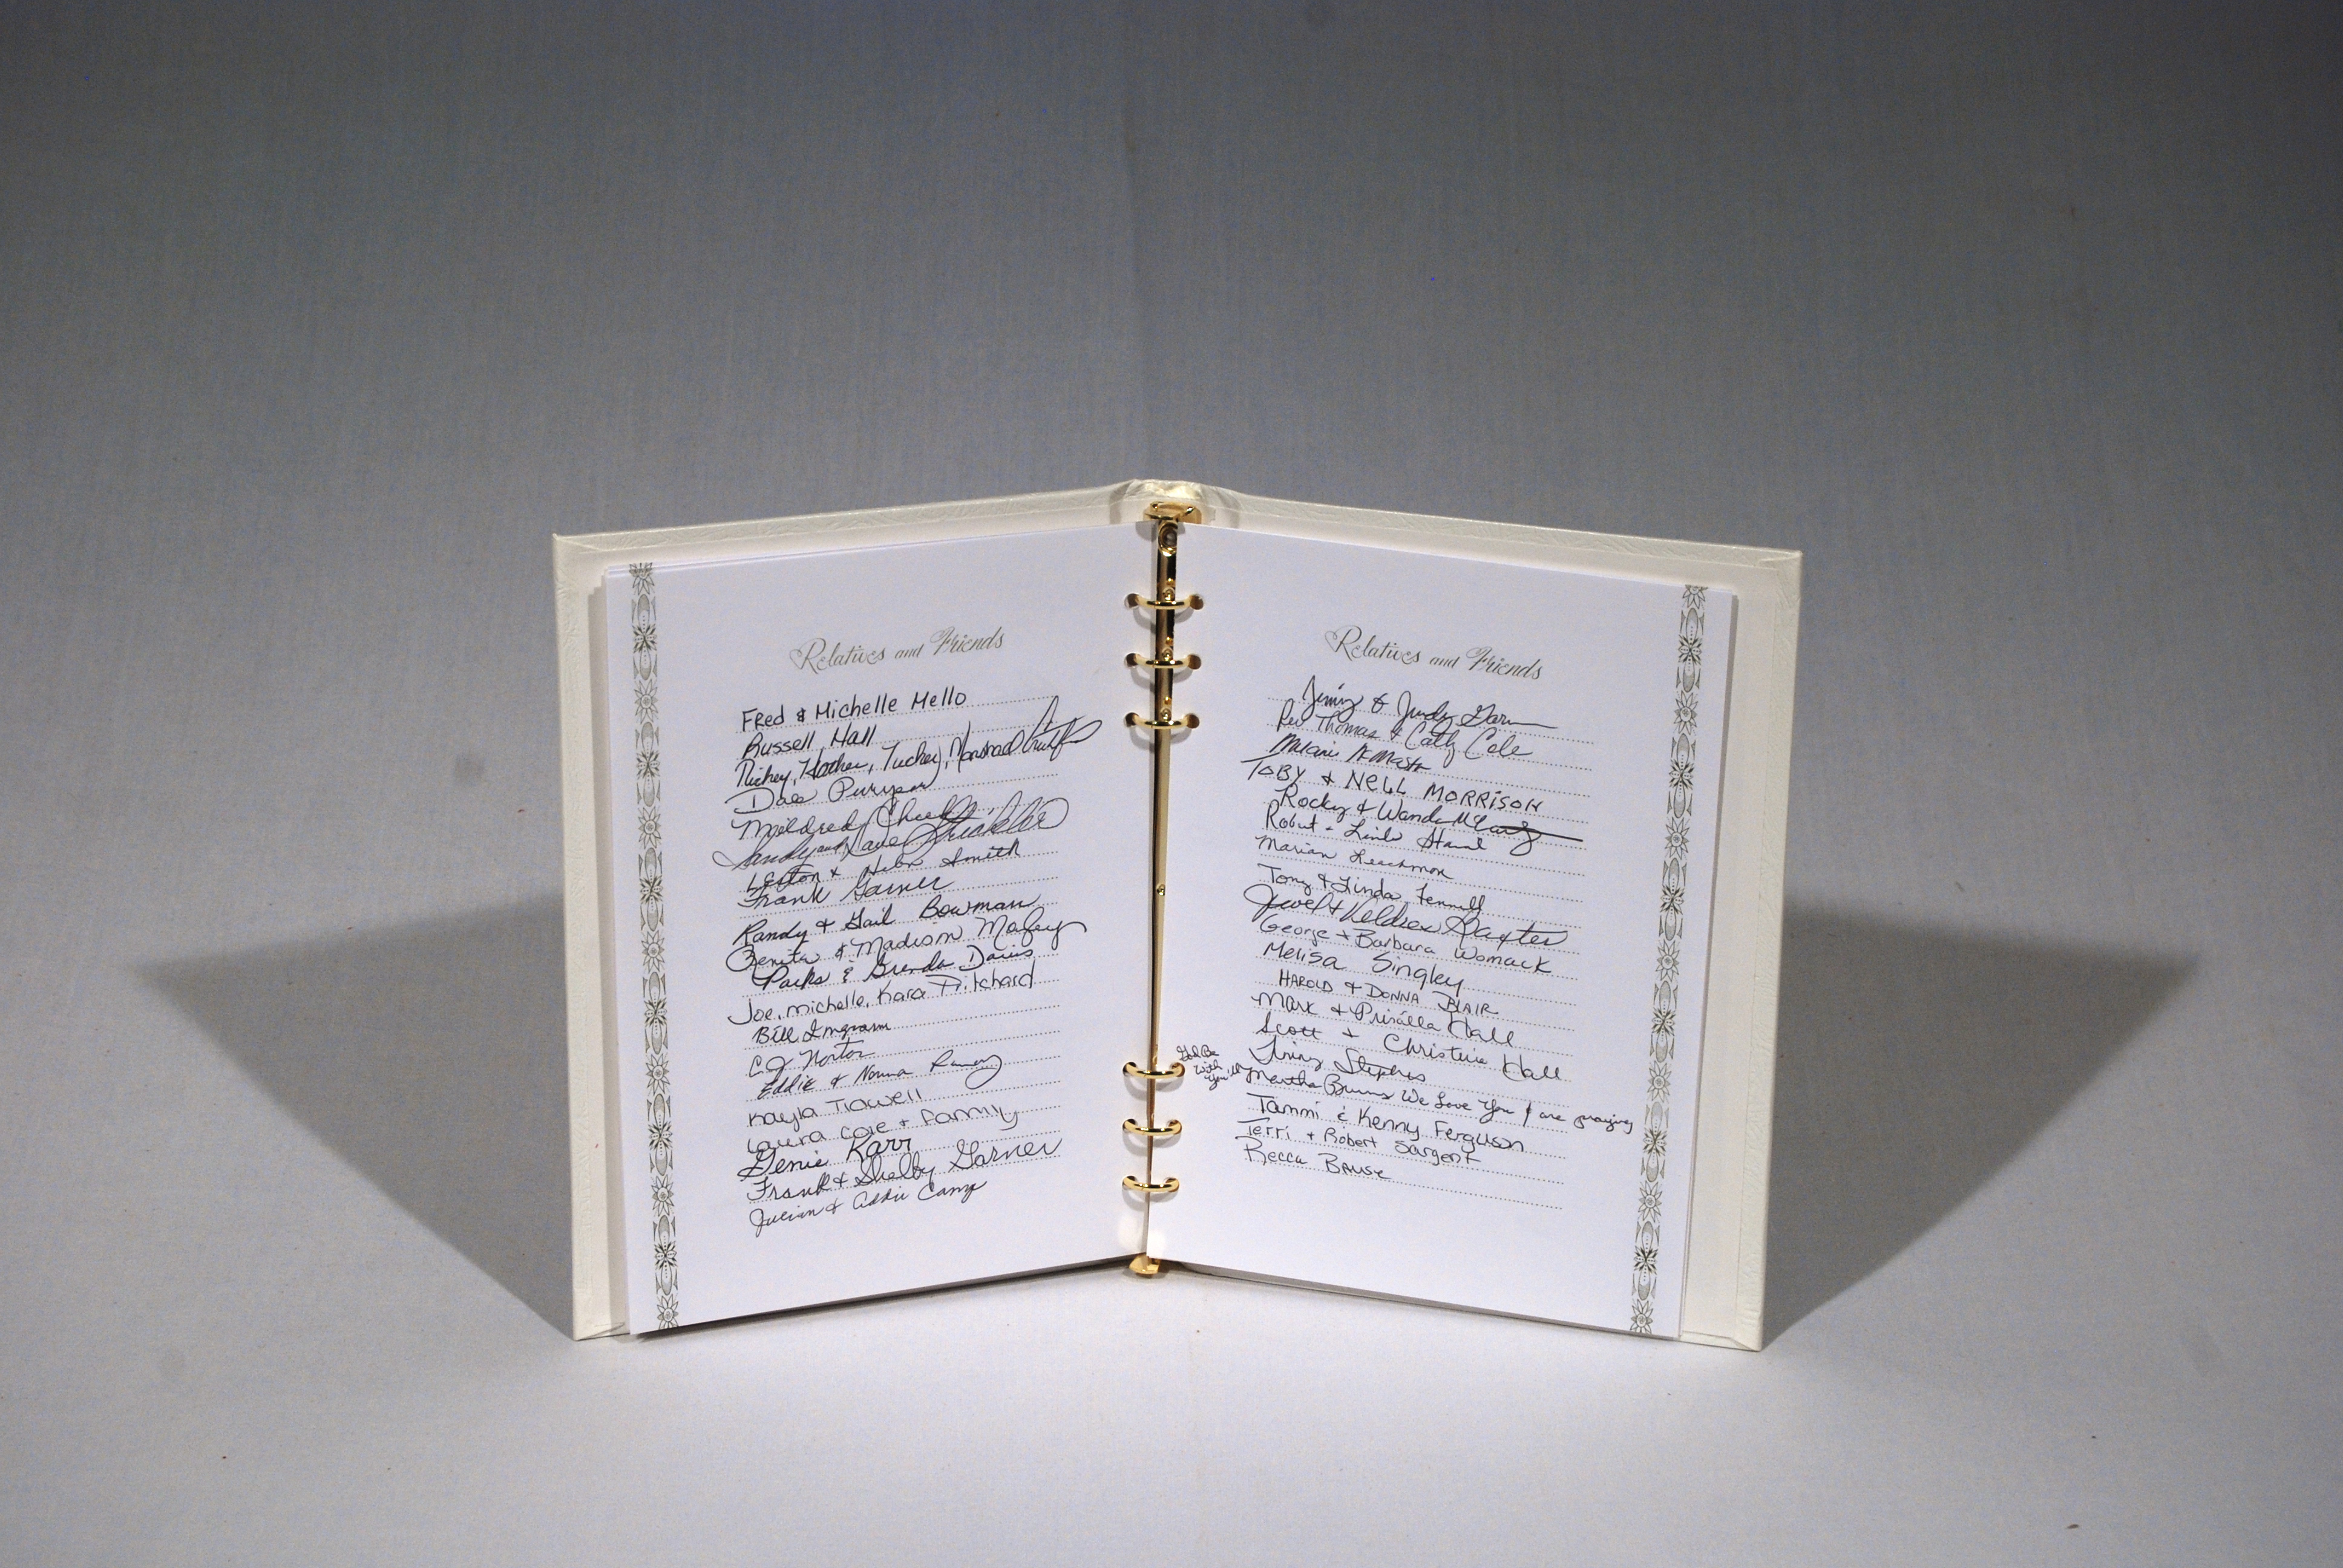 Relatives and Friends
Fred & Michelle Mello
Russell Hall
Rickey, Heather, Tucker, Marshal
Dale Puryear
Mildred Cheek
Sandy and Dave Strickler
Layton & Helen Smith
Frank Garner
Randy & Gail Bowman
Benita & Madison Mafey
Parks & Brenda Davis
Joe, Michelle, Kara Pritchard
Bill Ingram
C.J. Norton
Eddie & Norma Raney
Kayla Tidwell
Laura Cole + Family
Genie Karr
Frank & Shelby Garner
Julian & Addie Camp
Relatives and Friends
Jimmy & Judy
Rev Thomas & Cathy Cole
TOBY & NELL MORRISON
Rocky & Wanda
Robert + Linda
Marian Leachman
Tony & Linda Fennell
Jewel & Baxter
George + Barbara Womack
Melisa Singley
HAROLD & DONNA BLAIR
Mark & Priscilla Hall
Scott & Christina Hall
Stephens
God Be With You'll
Martha Burns We Love You & are praying
Tammi & Kenny Ferguson
Terri + Robert Sargent
Becca Bause